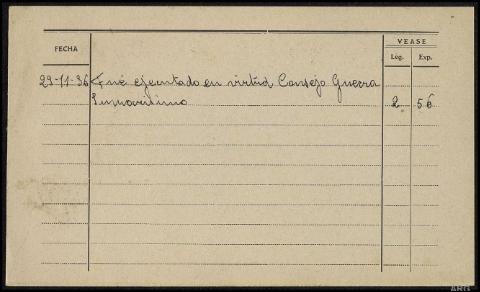 VEASE
FECHA
Leg. Exp.
29-11-36 Fué ejecutado en virtud Consejo Guerra
Sumarísimo 2 56
ARG